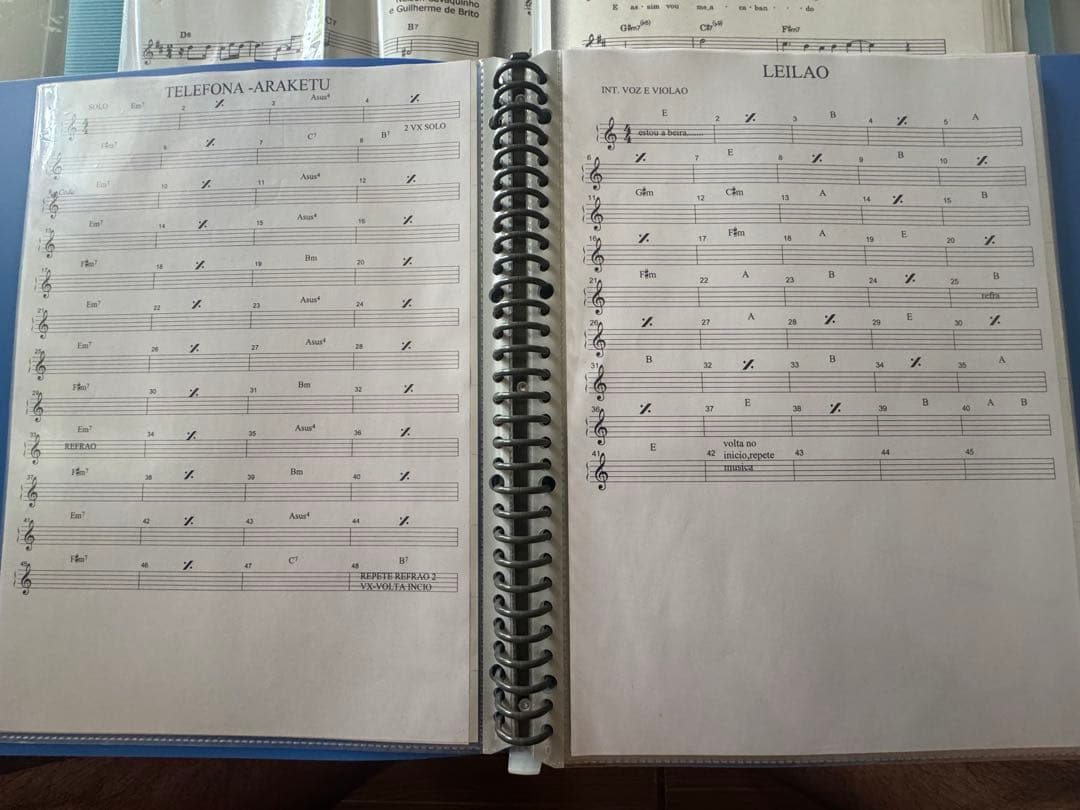 Nelson Cavaquinho
e Guilherme de Brito
D6
C7
B7
E as - sim vou me a - ca - ban - - - do
G#m7(b5) C#7(b9) F#m7
TELEFONA -ARAKETU
SOLO Em7 2 𝄎 3 Asus4 4 𝄎
2 VX SOLO
F#m7 6 𝄎 7 C7 8 B7
Coda Em7 10 𝄎 11 Asus4 12 𝄎
13 Em7 14 𝄎 15 Asus4 16 𝄎
17 F#m7 18 𝄎 19 Bm 20 𝄎
21 Em7 22 𝄎 23 Asus4 24 𝄎
25 Em7 26 𝄎 27 Asus4 28 𝄎
29 F#m7 30 𝄎 31 Bm 32 𝄎
33 Em7 34 𝄎 35 Asus4 36 𝄎
REFRAO
37 F#m7 38 𝄎 39 Bm 40 𝄎
41 Em7 42 𝄎 43 Asus4 44 𝄎
45 F#m7 46 𝄎 47 C7 48 B7
REPETE REFRAO 2
VX-VOLTA INCIO
LEILAO
INT. VOZ E VIOLAO
E 2 𝄎 3 B 4 𝄎 5 A
4/4 estou a beira.......
6 𝄎 7 E 8 𝄎 9 B 10 𝄎
11 G#m 12 C#m 13 A 14 𝄎 15 B
16 𝄎 17 F#m 18 A 19 E 20 𝄎
21 F#m 22 A 23 B 24 𝄎 25 B
refra
26 𝄎 27 A 28 𝄎 29 E 30 𝄎
31 B 32 𝄎 33 B 34 𝄎 35 A
36 𝄎 37 E 38 𝄎 39 B 40 A B
41 E 42 volta no 43 44 45
inicio,repete
musica